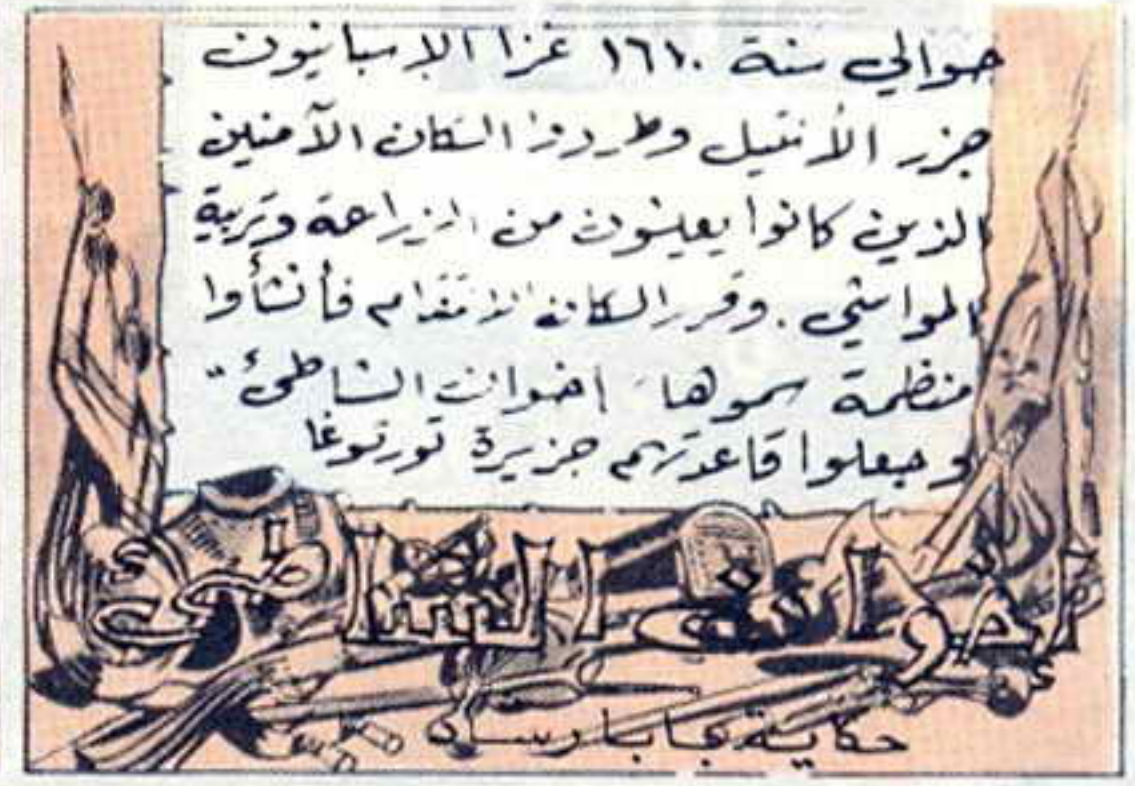 حوالي سنة ١٦١٠ غزا الإسبانيون
جزر الأنتيل وطردوا السكان الآمنين
الذين كانوا يعيشون من الزراعة وتربية
المواشي . وقرر السكان الانتقام فأنشأوا
منظمة سموها " إخوان الشاطئ "
وجعلوا قاعدتهم جزيرة تورتوغا
إخوان الشاطئ
حكاية